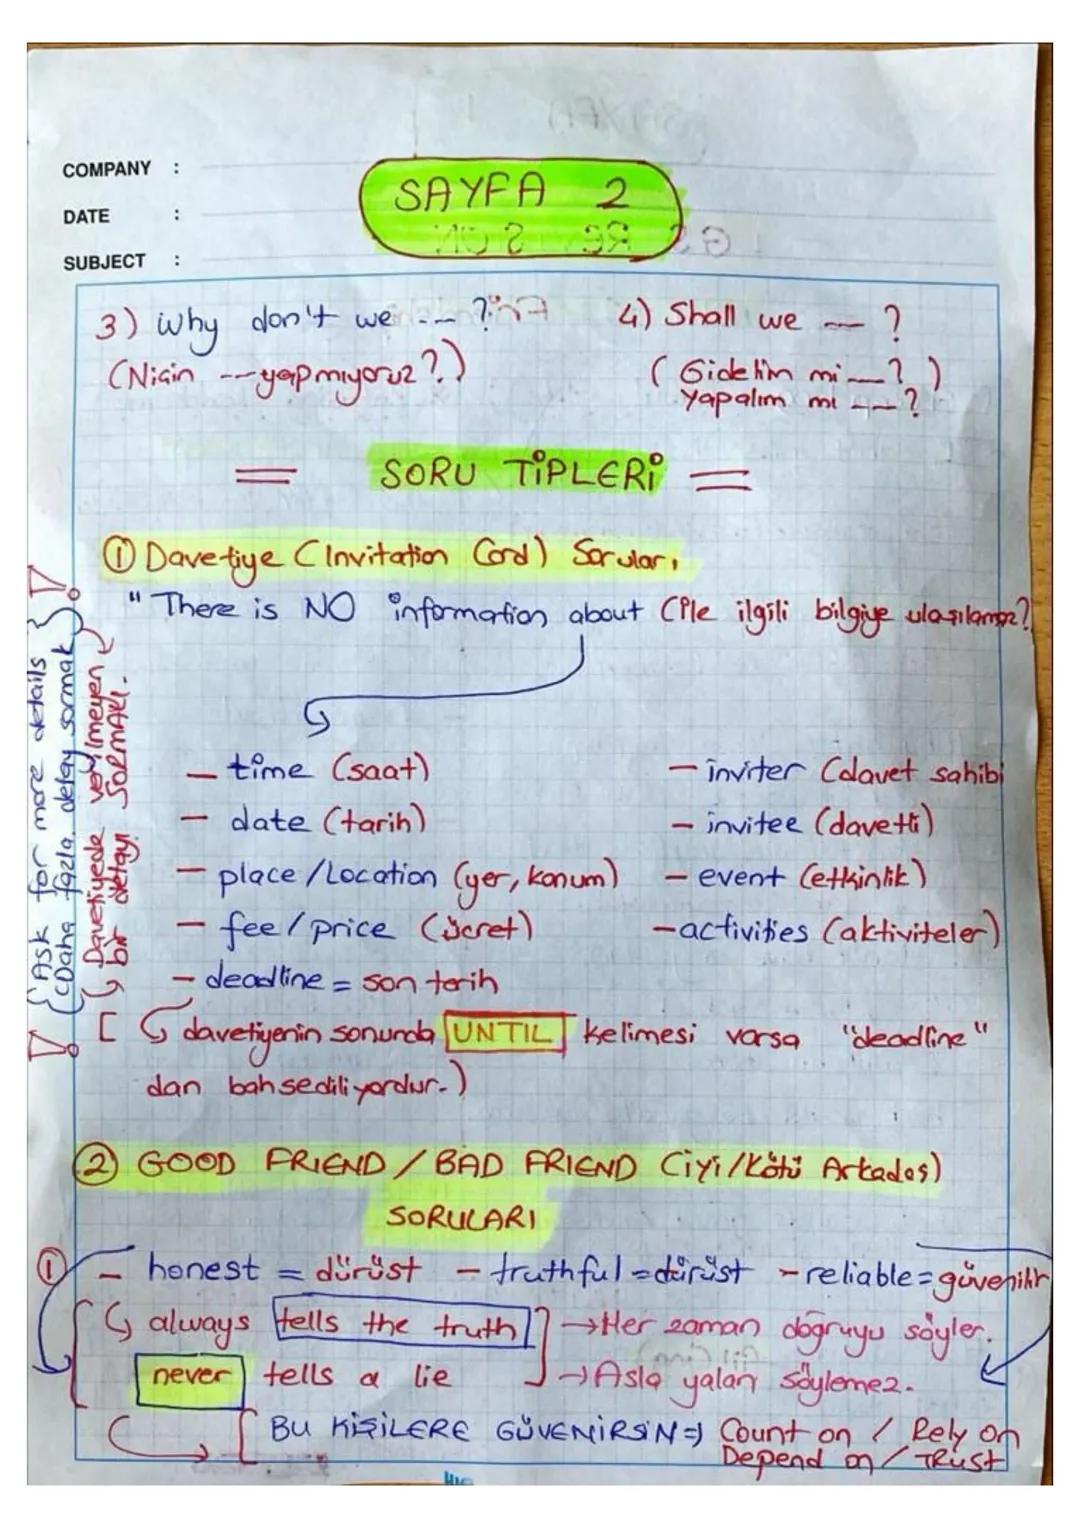 COMPANY :
DATE :
SUBJECT :
SAYFA 2
3) Why don't we --- ?
(Niçin ---yapmıyoruz?)
4) Shall we --- ?
(Gidelim mi ---? )
yapalım mı ---?
= SORU TİPLERİ =
① Davetiye (Invitation Card) Soruları
" There is NO information about (ile ilgili bilgiye ulaşılamaz?
- time (saat)
- date (tarih)
- place/Location (yer, konum)
- fee/price (ücret)
- deadline = son tarih
- inviter (davet sahibi
- invitee (davetli)
- event (etkinlik)
- activities (aktiviteler)
Ask for more details
(Daha fazla detay sormak)
Davetiyede verilmeyen
bir detayı SORMAK.
[ davetiyenin sonunda UNTIL kelimesi varsa "deadline"
dan bahsediliyordur.)
② GOOD FRIEND / BAD FRIEND (iyi/kötü Arkadaş)
SORULARI
① - honest = dürüst - truthful = dürüst - reliable = güvenilir
always tells the truth → Her zaman doğruyu söyler.
never tells a lie → Asla yalan söylemez.
BU KİŞİLERE GÜVENİRSİN ⇒ Count on / Rely on
Depend on / TRust